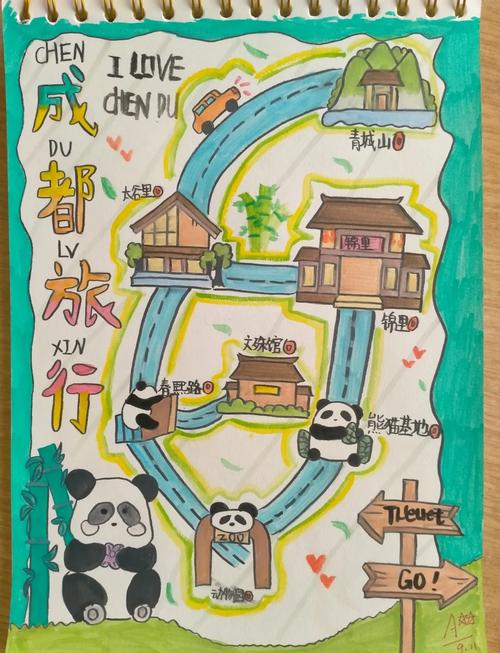 CHEN
成
DU
都
LV
旅
XIN
行
I LOVE
CHEN DU
青城山
太谷里
锦里
锦里
文殊馆
春熙路
熊猫基地
ZOO
动物园
GO!